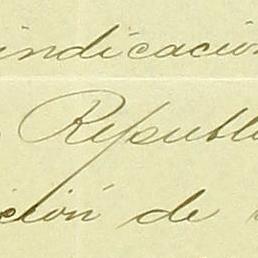 indicación
Republi
ción de